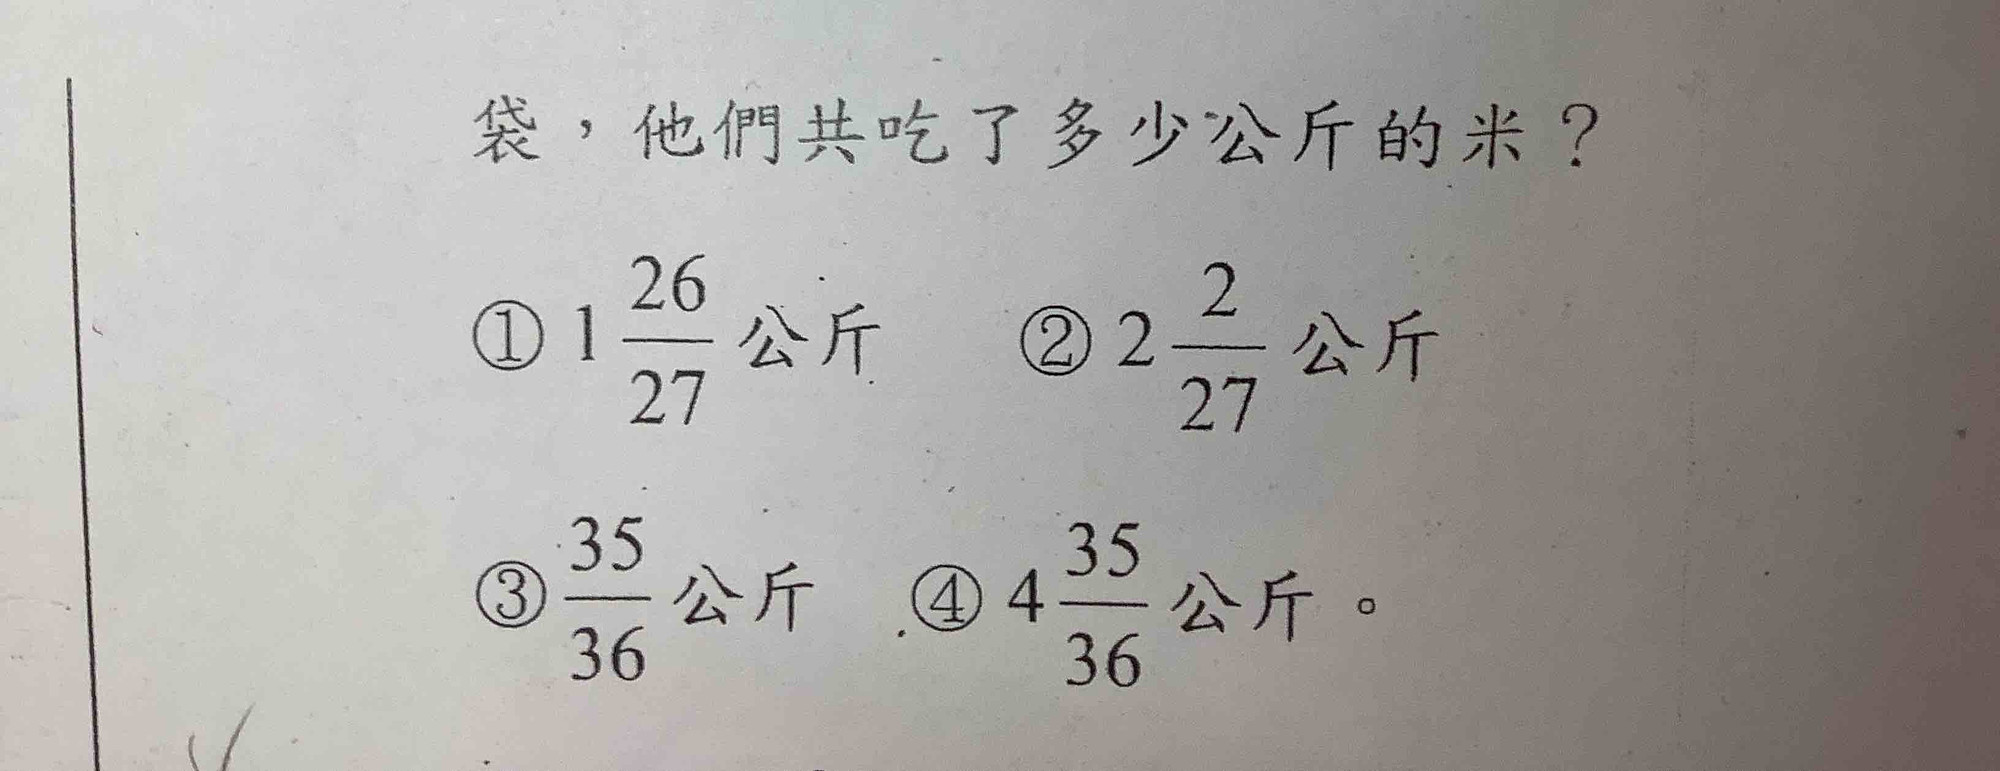 袋，他們共吃了多少公斤的米？
① 1 26/27 公斤 ② 2 2/27 公斤
③ 35/36 公斤 ④ 4 35/36 公斤。